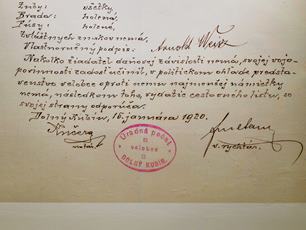 Zuby: všetky,
Brada: holená,
Fúzy: holené,
Zvláštnych znakov nemá.
Vlastnoručný podpis: Arnold
Nakoľko žiadateľ daňovej závislosti nemá, svojej vojo-
povinnosti zadosťučinil, v politickom ohľade predsta-
venstvo velobce oproti nemu najmenšej námietky
nemá, následkom toho vydanie cestovného listu, so
svojej strany odporúča.
Dolný Kubín, 16. januára 1920.
Úradná pečať
velobce
DOLNÝ KUBÍN
notár.
v. rychtár.